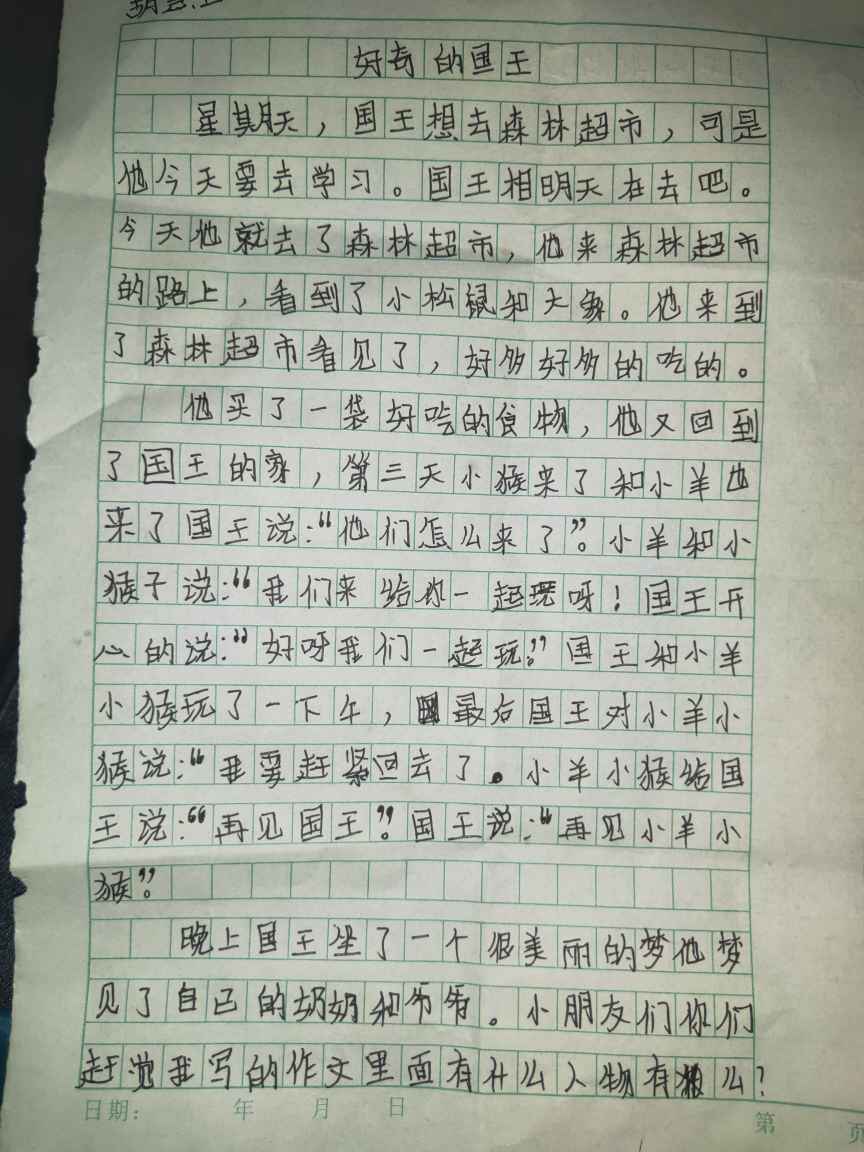 好奇的国王
星期天，国王想去森林超市，可是
他今天要去学习。国王相明天在去吧。
今天他就去了森林超市，他来森林超市
的路上，看到了小松鼠和大象。他来到
了森林超市看见了，好多好多的吃的。
他买了一袋好吃的食物，他又回到
了国王的家，第三天小猴来了和小羊也
来了国王说：“他们怎么来了”。小羊和小
猴子说：“我们来给你一起玩呀！国王开
心的说：”好呀我们一起玩”。国王和小羊
小猴玩了一下午，最后国王对小羊小
猴说：“我要赶紧回去了。小羊小猴给国
王说：“再见国王”。国王说：“再见小羊小
猴”。
晚上国王坐了一个很美丽的梦他梦
见了自己的奶奶和爷爷。小朋友们你们
赶觉我写的作文里面有什么人物有狼么？
日期： 年 月 日
第 页